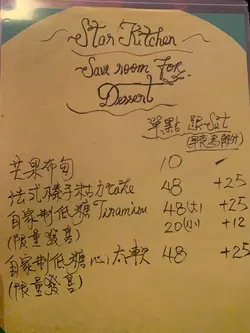 Star Kitchen
Save room For
Dessert
單點 跟Set
芒果布甸 10
法式榛子朱古力cake 48 +25
自家制低糖Tiramisu 48(大) +25
(限量發售) 20(小) +12
自家制低糖心太軟 48 +25
(限量發售)